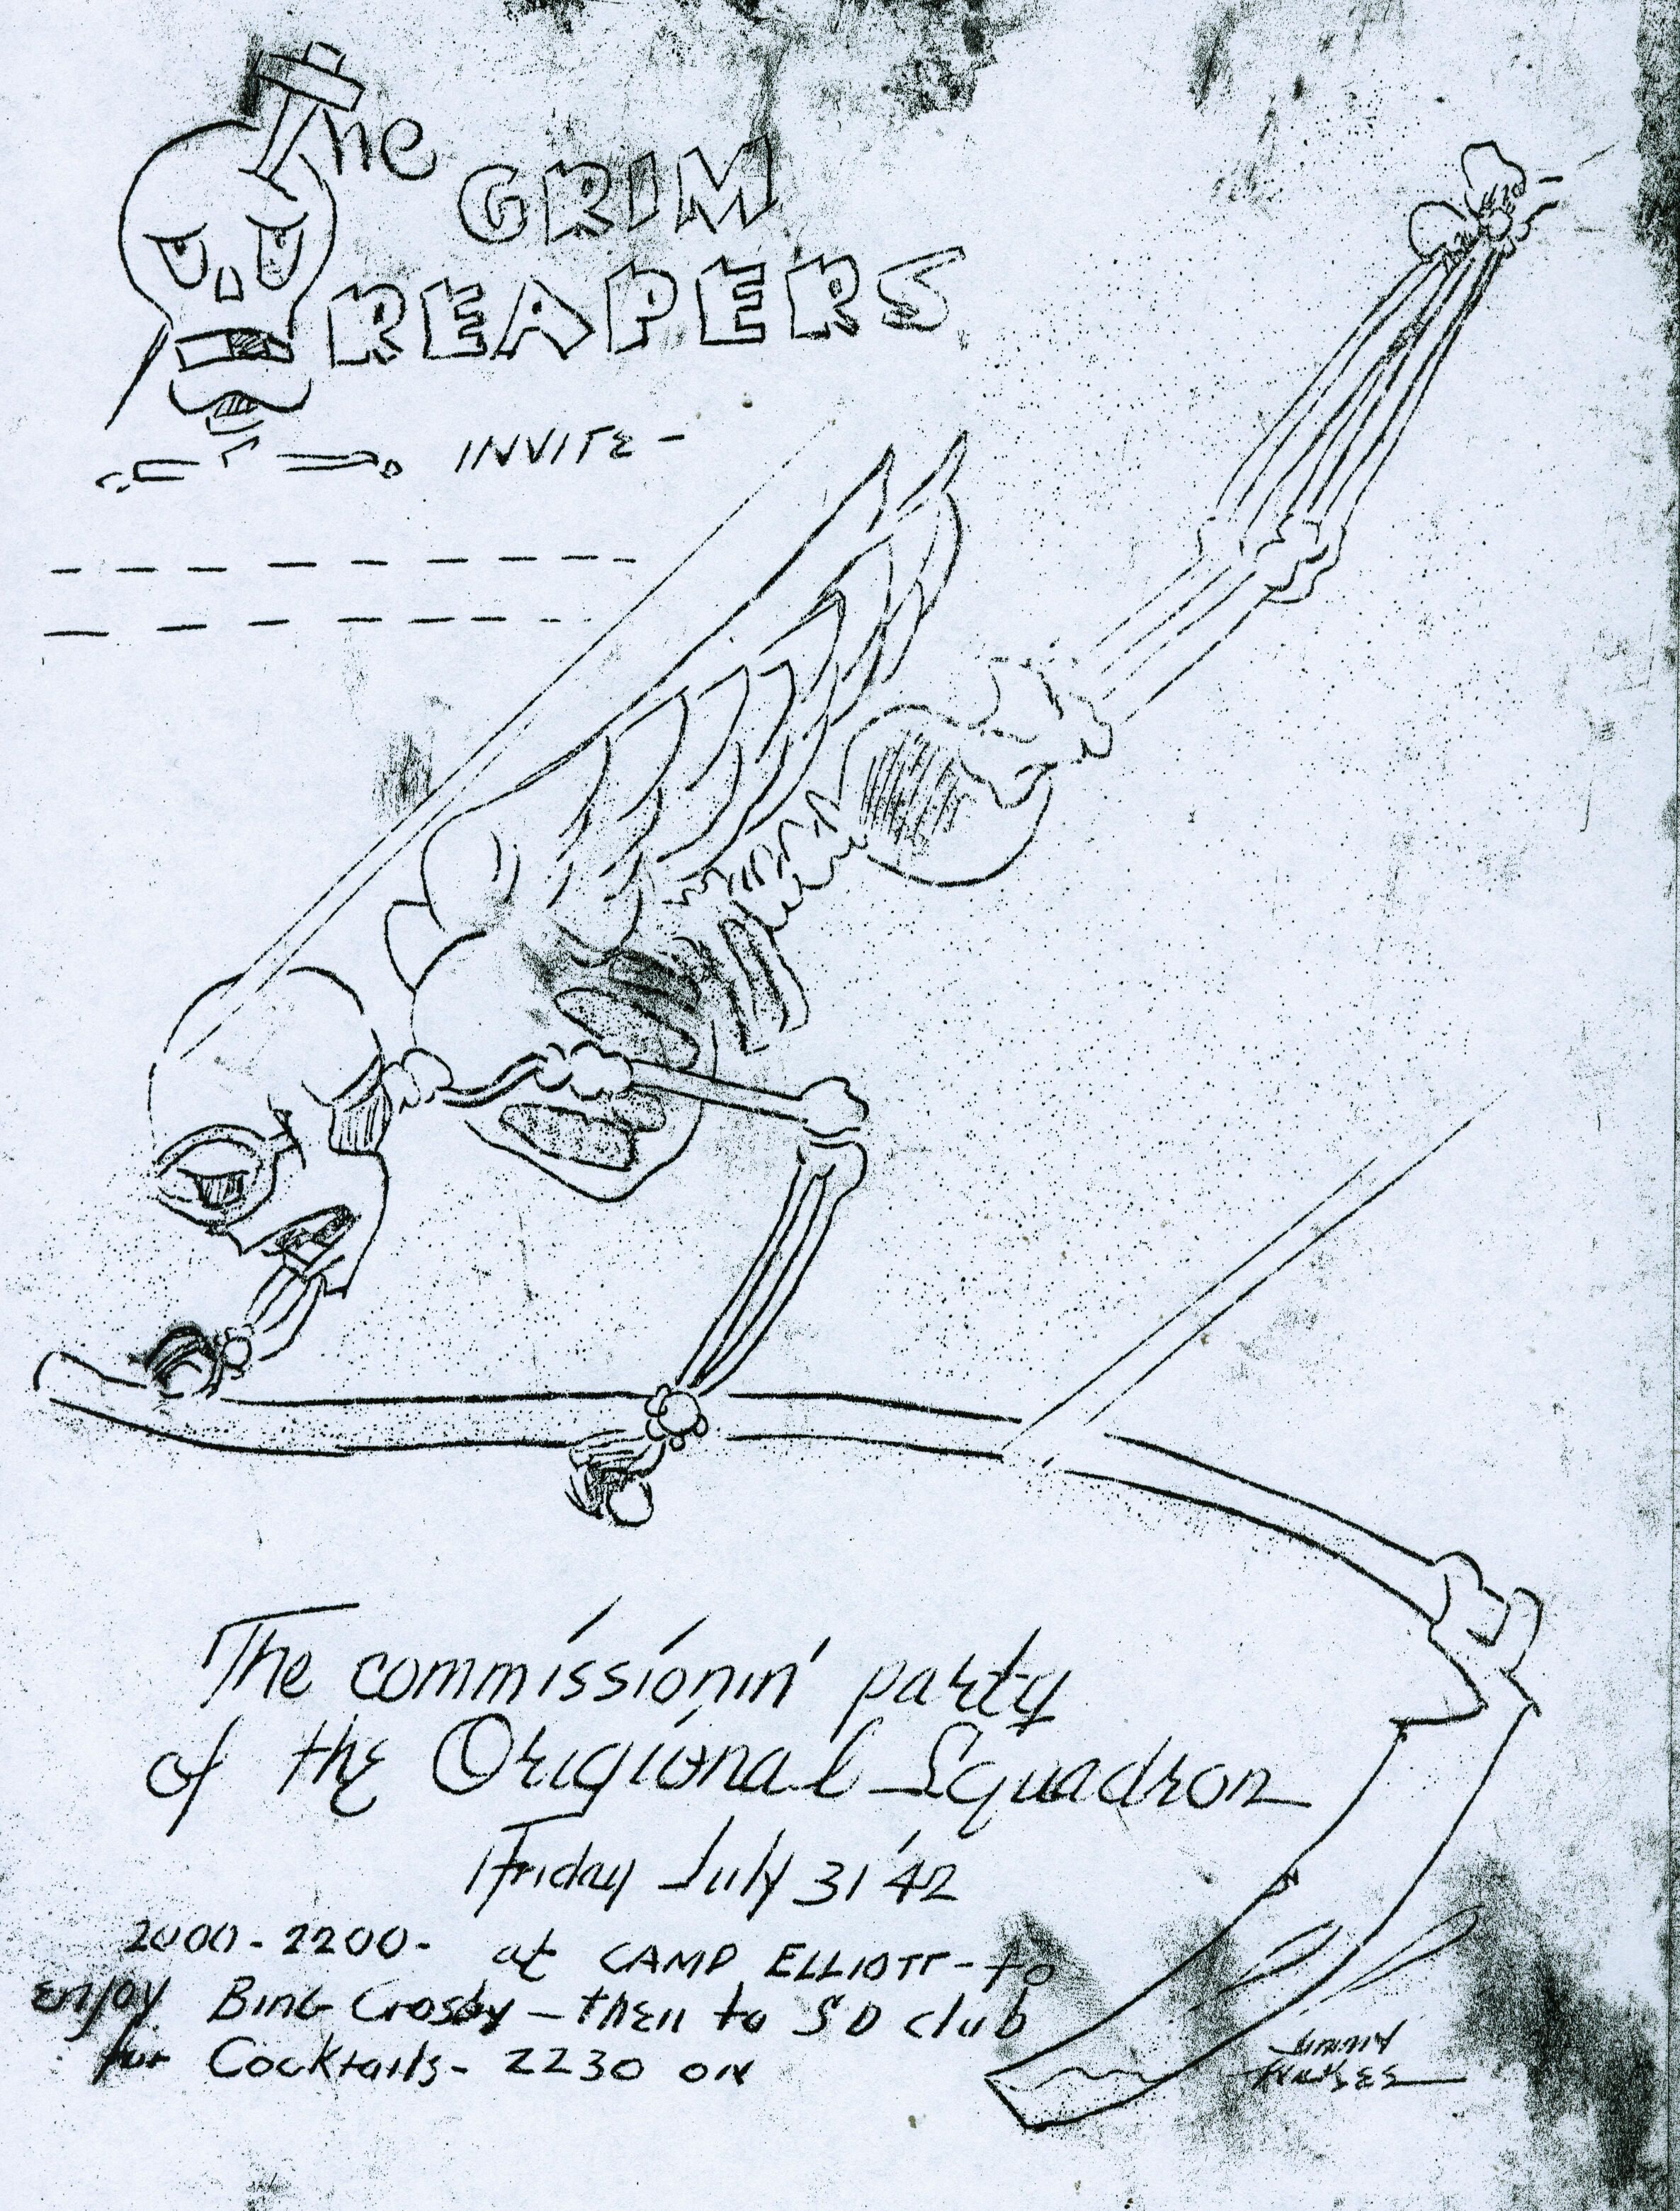 The GRIM
REAPERS
INVITE-
The commissionin' party
of the Origional Squadron
Friday July 31 '42
2000-2200- at CAMP ELLIOTT-to
enjoy Bing Crosby - then to SD club
for Cocktails- 2230 on
Jimmy